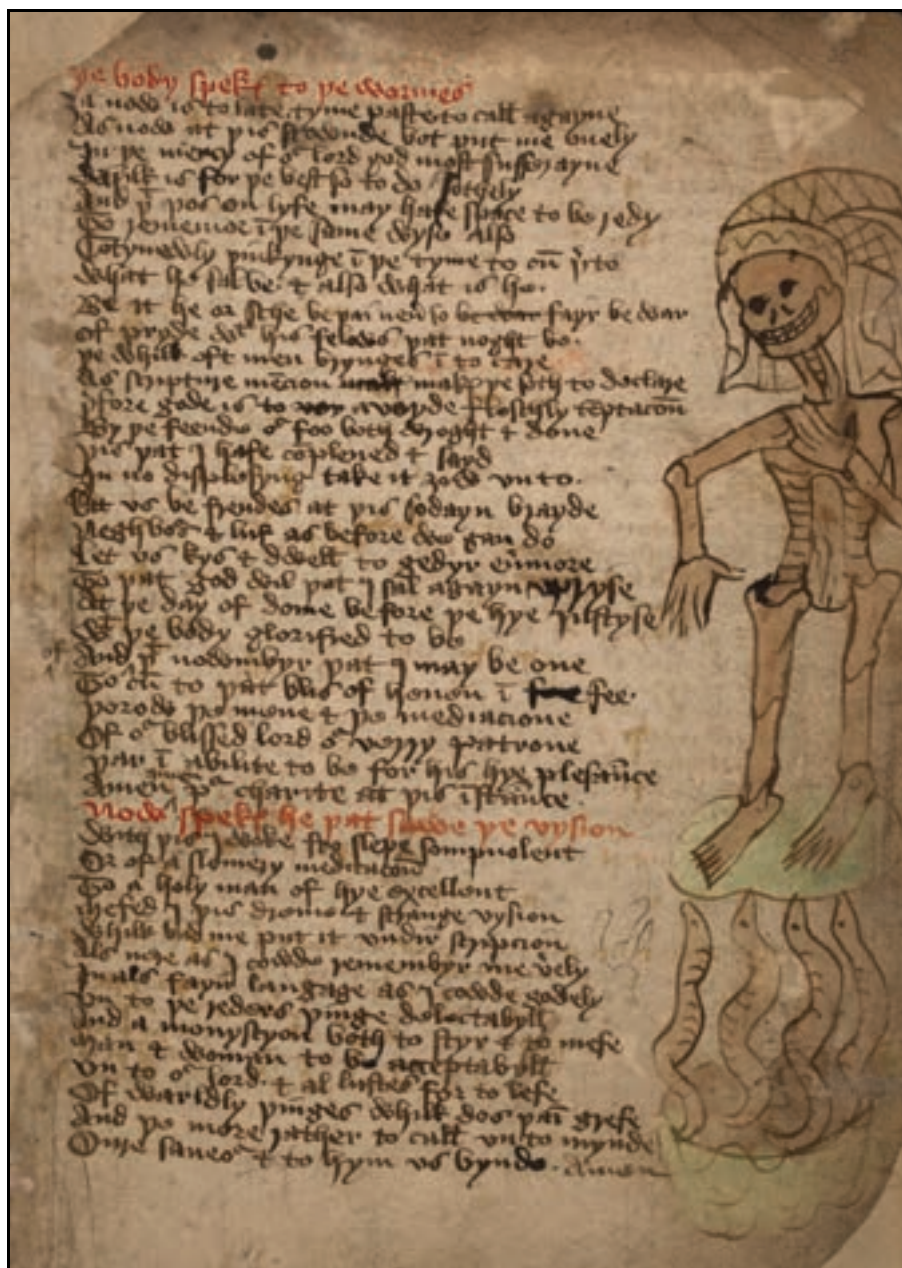 þe body spekes to þe wormes
Ya now is to late tyme paste to call agayne
As now at þis stownde bot put me onely
In þe mercy of oʳ lord god most sufforayne
Whilk is for þe best so to do sothely
And þᵗ þos on lyfe may hafe space to be redy
To rememor ī þe same wyse also
Cotynewly þinkynge ī þe tyme to cū
What he sal be & also what is he
Be it he or sche be þai neuer so be war fayr be war
Of pryde wᵗ his felows þat noght be
þe whilk oft men brynges ī to care
As scripture mēcion make þe soth to declare
þfore gode is to avoyde fleschly tēptacōn
By þe feende oʳ foo both wroght & done
þis þat I hafe coplened & sayd
In no displesyng take it ȝow vnto
Let vs be frendes at þis sodayn brayde
Neghbos & luf as before we gan do
Let vs kys & dwell to gedyr euermore
To þat god wil þat I sal agayn vpryse
At þe day of dome before þe hye justyse
Wᵗ þe body glorified to be
And of þᵗ nowmbyr þat I may be one
To cū to þat blis of heuen ī fee
þorow þe mene & þe mediacione
Of oʳ blissed lord oʳ verry patrone
þar ī abilite to be for his hye plesaūce
Amen þʳ charite at þis īstaūce
Now spekes he þat sawe þe vysion
With þis I woke fro slepe sompnolent
Or of a slomery meditacōn
To a holy man of hye excellent
Mefed I þis dreme & strange vysion
Whilk bad me put it vndir scripcion
Als nere as I cowde remembyr me verely
In als fayr langage as I cowde godely
Vn to þe reders þinge delectabyll
And a monysyon both to styr & to mefe
Man & woman to be acceptabyll
Vn to oʳ lord & al lustes for to lefe
Of warldly þinges whilk dos þai grefe
And þe more rather to call vn to mynde
Oure saueoʳ & to hym vs bynde. Amen